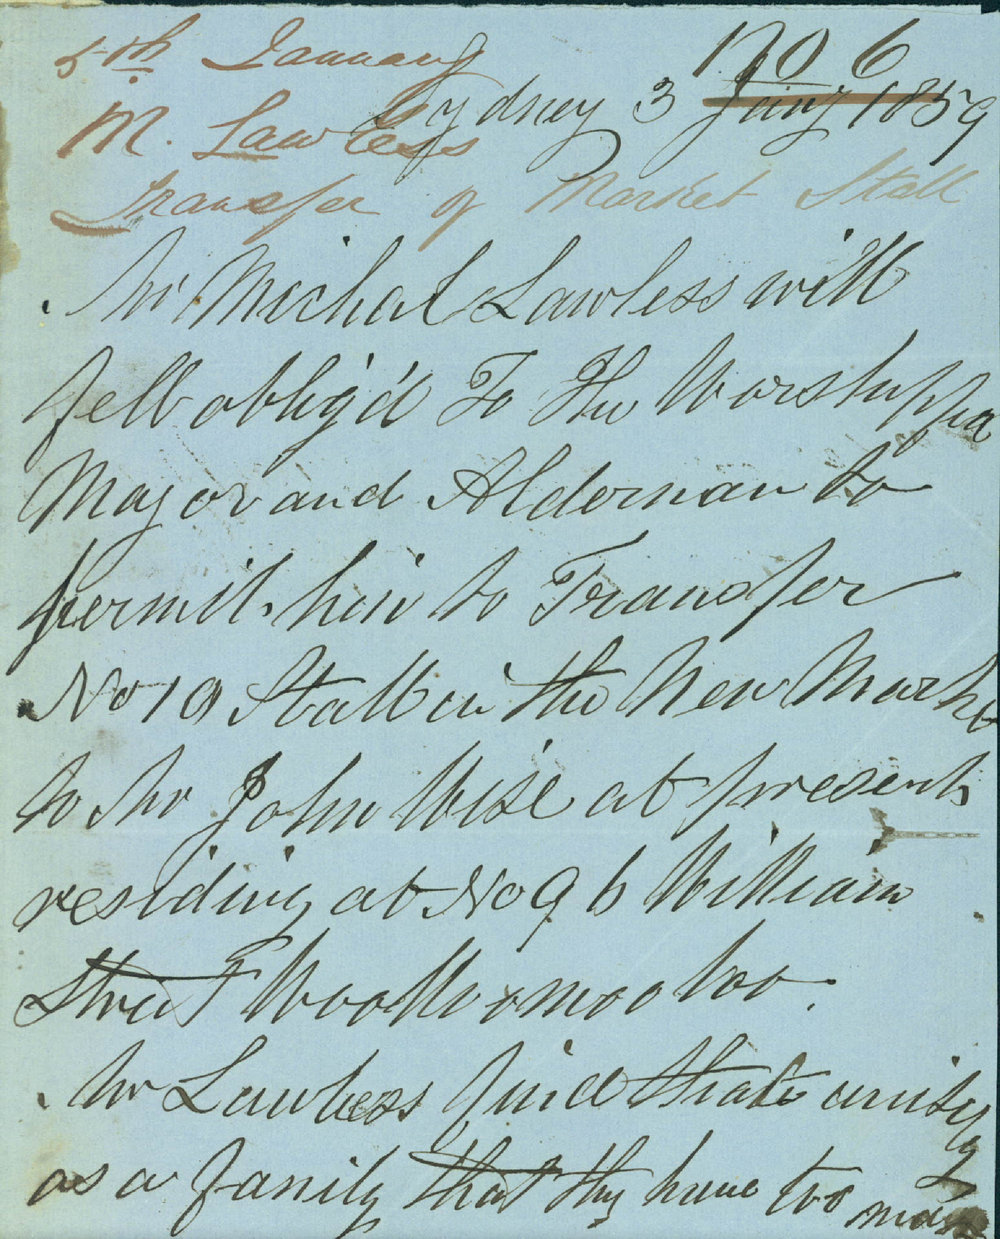 5th January
1706
Sydney 3 Jany 1859
M. Lawless
Transfer of Market Stall
Mr Michal Lawless will
fell oblig'd To The Worshuppa
Mayor and Alderman to
permit him to Transfer
No 19 Stall in the New Marke
to Mr John Wise at present
residing at No 96 William
Street Woolloomooloo.
Mr Lawless find that
as a family that they have too